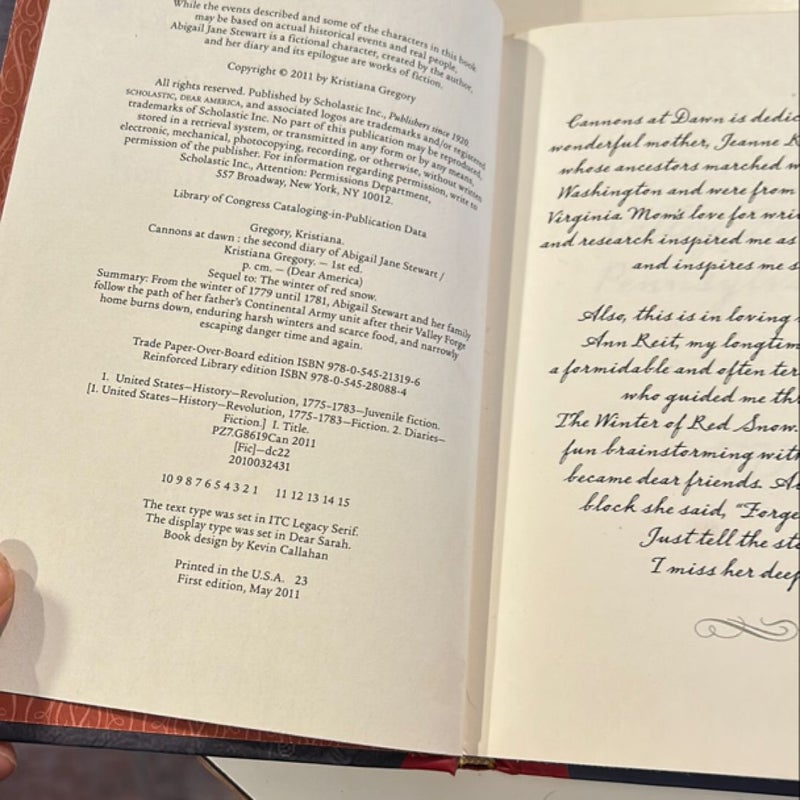 While the events described and some of the characters in this book
may be based on actual historical events and real people,
Abigail Jane Stewart is a fictional character, created by the author,
and her diary and its epilogue are works of fiction.
Copyright © 2011 by Kristiana Gregory
All rights reserved. Published by Scholastic Inc., Publishers since 1920.
SCHOLASTIC, DEAR AMERICA, and associated logos are trademarks and/or registered
trademarks of Scholastic Inc. No part of this publication may be reproduced,
stored in a retrieval system, or transmitted in any form or by any means,
electronic, mechanical, photocopying, recording, or otherwise, without written
permission of the publisher. For information regarding permission, write to
Scholastic Inc., Attention: Permissions Department,
557 Broadway, New York, NY 10012.
Library of Congress Cataloging-in-Publication Data
Gregory, Kristiana.
Cannons at dawn : the second diary of Abigail Jane Stewart /
Kristiana Gregory. — 1st ed.
p. cm. — (Dear America)
Sequel to: The winter of red snow.
Summary: From the winter of 1779 until 1781, Abigail Stewart and her family
follow the path of her father's Continental Army unit after their Valley Forge
home burns down, enduring harsh winters and scarce food, and narrowly
escaping danger time and again.
Trade Paper-Over-Board edition ISBN 978-0-545-21319-6
Reinforced Library edition ISBN 978-0-545-28088-4
1. United States—History—Revolution, 1775–1783—Juvenile fiction.
[1. United States—History—Revolution, 1775–1783—Fiction. 2. Diaries—
Fiction.] I. Title.
PZ7.G8619Can 2011
[Fic]—dc22
2010032431
10 9 8 7 6 5 4 3 2 1 11 12 13 14 15
The text type was set in ITC Legacy Serif.
The display type was set in Dear Sarah.
Book design by Kevin Callahan
Printed in the U.S.A. 23
First edition, May 2011
Cannons at Dawn is dedic
wonderful mother, Jeanne K
whose ancestors marched w
Washington and were from
Virginia. Mom's love for wri
and research inspired me as
and inspires me s
Also, this is in loving
Ann Reit, my longtim
a formidable and often ter
who guided me th
The Winter of Red Snow.
fun brainstorming with
became dear friends. A
block she said, "Forge
Just tell the sto
I miss her deep